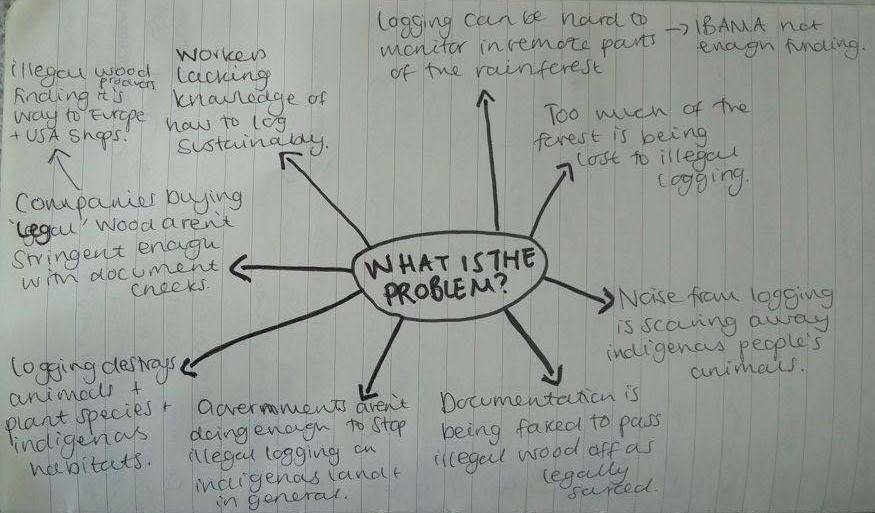 WHAT IS THE
PROBLEM?
Logging can be hard to
monitor in remote parts
of the rainforest
→ IBAMA not
enough funding.
Too much of the
forest is being
lost to illegal
logging.
Noise from logging
is scaring away
indigenous people's
animals.
Documentation is
being faked to pass
illegal wood off as
legally
sourced.
Governments aren't
doing enough to stop
illegal logging on
indigenous land +
in general.
Logging destroys
animals +
plant species +
indigenous
habitats.
Companies buying
'Legal' wood aren't
stringent enough
with document
checks.
illegal wood
products
finding it's
way to Europe
+ USA Shops.
Workers
lacking
knowledge of
how to log
sustainably.